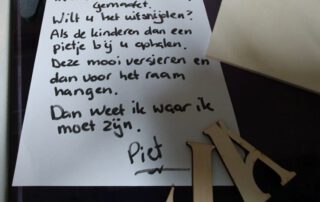 gemaakt.
Wilt u het uitsnijden?
Als de kinderen dan een
pietje bij u ophalen.
Deze mooi versieren en
dan voor het raam
hangen.
Dan weet ik waar ik
moet zijn.
Piet